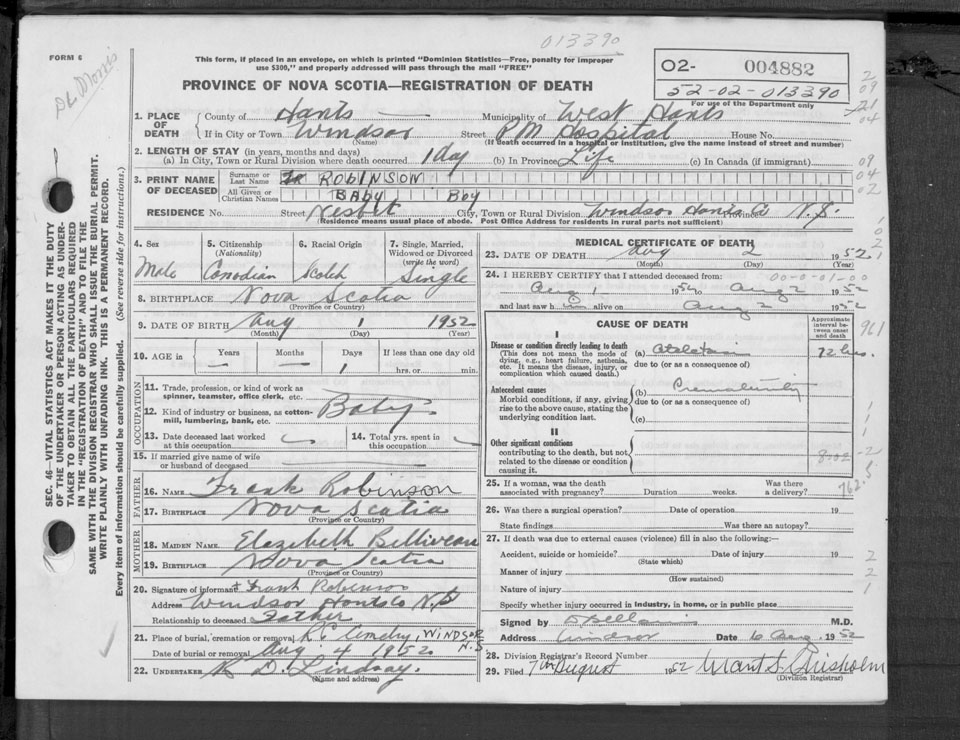 013390
FORM 6
DL Morris
This form, if placed in an envelope, on which is printed "Dominion Statistics—Free, penalty for improper
use $300," and properly addressed will pass through the mail "FREE"
PROVINCE OF NOVA SCOTIA—REGISTRATION OF DEATH
O2- 004882
52-02-013390
For use of the Department only
1. PLACE OF DEATH
County of Hants Municipality of West Hants
If in City or Town Windsor Street P.M Hospital House No.
(Name) (If death occurred in a hospital or institution, give the name instead of street and number)
2. LENGTH OF STAY (in years, months and days)
(a) In City, Town or Rural Division where death occurred 1 day (b) In Province Life (c) In Canada (if immigrant)
3. PRINT NAME OF DECEASED
Surname or Last Name ROBINSON
All Given or Christian Names BABY Boy
RESIDENCE No. Street Nesbit City, Town or Rural Division Windsor Hants Co Province N.S.
(Residence means usual place of abode. Post Office Address for residents in rural parts not sufficient)
4. Sex
Male
5. Citizenship
(Nationality)
Canadian
6. Racial Origin
Scotch
7. Single, Married,
Widowed or Divorced
(write the word)
Single
8. BIRTHPLACE Nova Scotia
(Province or Country)
9. DATE OF BIRTH Aug 1 1952
(Month) (Day) (Year)
10. AGE in Years Months Days If less than one day old
— — 1 hrs. or min.
OCCUPATION
11. Trade, profession, or kind of work as
spinner, teamster, office clerk, etc.
12. Kind of industry or business, as cotten-
mill, lumbering, bank, etc.
Baby
13. Date deceased last worked
at this occupation
14. Total yrs. spent in
this occupation
15. If married give name of wife
or husband of deceased
FATHER
16. NAME Frank Robinson
17. BIRTHPLACE Nova Scotia
(Province or Country)
MOTHER
18. MAIDEN NAME Elazibeth Belliveau
19. BIRTHPLACE Nova Scotia
(Province or Country)
20. Signature of informant Frank Robinson
Address Windsor Hants Co N.S
Relationship to deceased Father
21. Place of burial, cremation or removal R.C Cemetry, WINDSOR N.S.
Date of burial or removal Aug 4 1952
22. UNDERTAKER R D. Lindsay.
(Name and address)
MEDICAL CERTIFICATE OF DEATH
23. DATE OF DEATH Aug 2 1952
(Month) (Day) (Year)
24. I HEREBY CERTIFY that I attended deceased from: 00-0-01-00
Aug 1 1952 to Aug 2 1952
and last saw h alive on Aug 2 1952
CAUSE OF DEATH
Approximate interval between onset and death
I
Disease or condition directly leading to death
(This does not mean the mode of
dying, e.g., heart failure, asthenia,
etc. It means the disease, injury, or
complication which caused death.)
(a)
due to (or as a consequence of)
hrs.
Antecedent causes
Morbid conditions, if any, giving
rise to the above cause, stating the
underlying condition last.
(b) Prematurity
due to (or as a consequence of)
(c)
II
Other significant conditions
contributing to the death, but not
related to the disease or condition
causing it.
762.5
25. If a woman, was the death
associated with pregnancy? Duration weeks. Was there a delivery?
26. Was there a surgical operation? Date of operation 19
State findings Was there an autopsy?
27. If death was due to external causes (violence) fill in also the following:—
Accident, suicide or homicide? Date of injury 19
(State which)
Manner of injury
(How sustained)
Nature of injury
Specify whether injury occurred in industry, in home, or in public place
Signed by M.D.
Address Windsor Date 6 Aug. 1952
28. Division Registrar's Record Number
29. Filed 7th August 1952 Chisholm
(Division Registrar)
SEC. 46—VITAL STATISTICS ACT MAKES IT THE DUTY
OF THE UNDERTAKER OR PERSON ACTING AS UNDER-
TAKER TO OBTAIN ALL THE PARTICULARS REQUIRED
IN THE "REGISTRATION OF DEATH" AND TO FILE THE
SAME WITH THE DIVISION REGISTRAR WHO SHALL ISSUE THE BURIAL PERMIT.
WRITE PLAINLY WITH UNFADING INK. THIS IS A PERMANENT RECORD.
Every item of information should be carefully supplied. (See reverse side for instructions.)